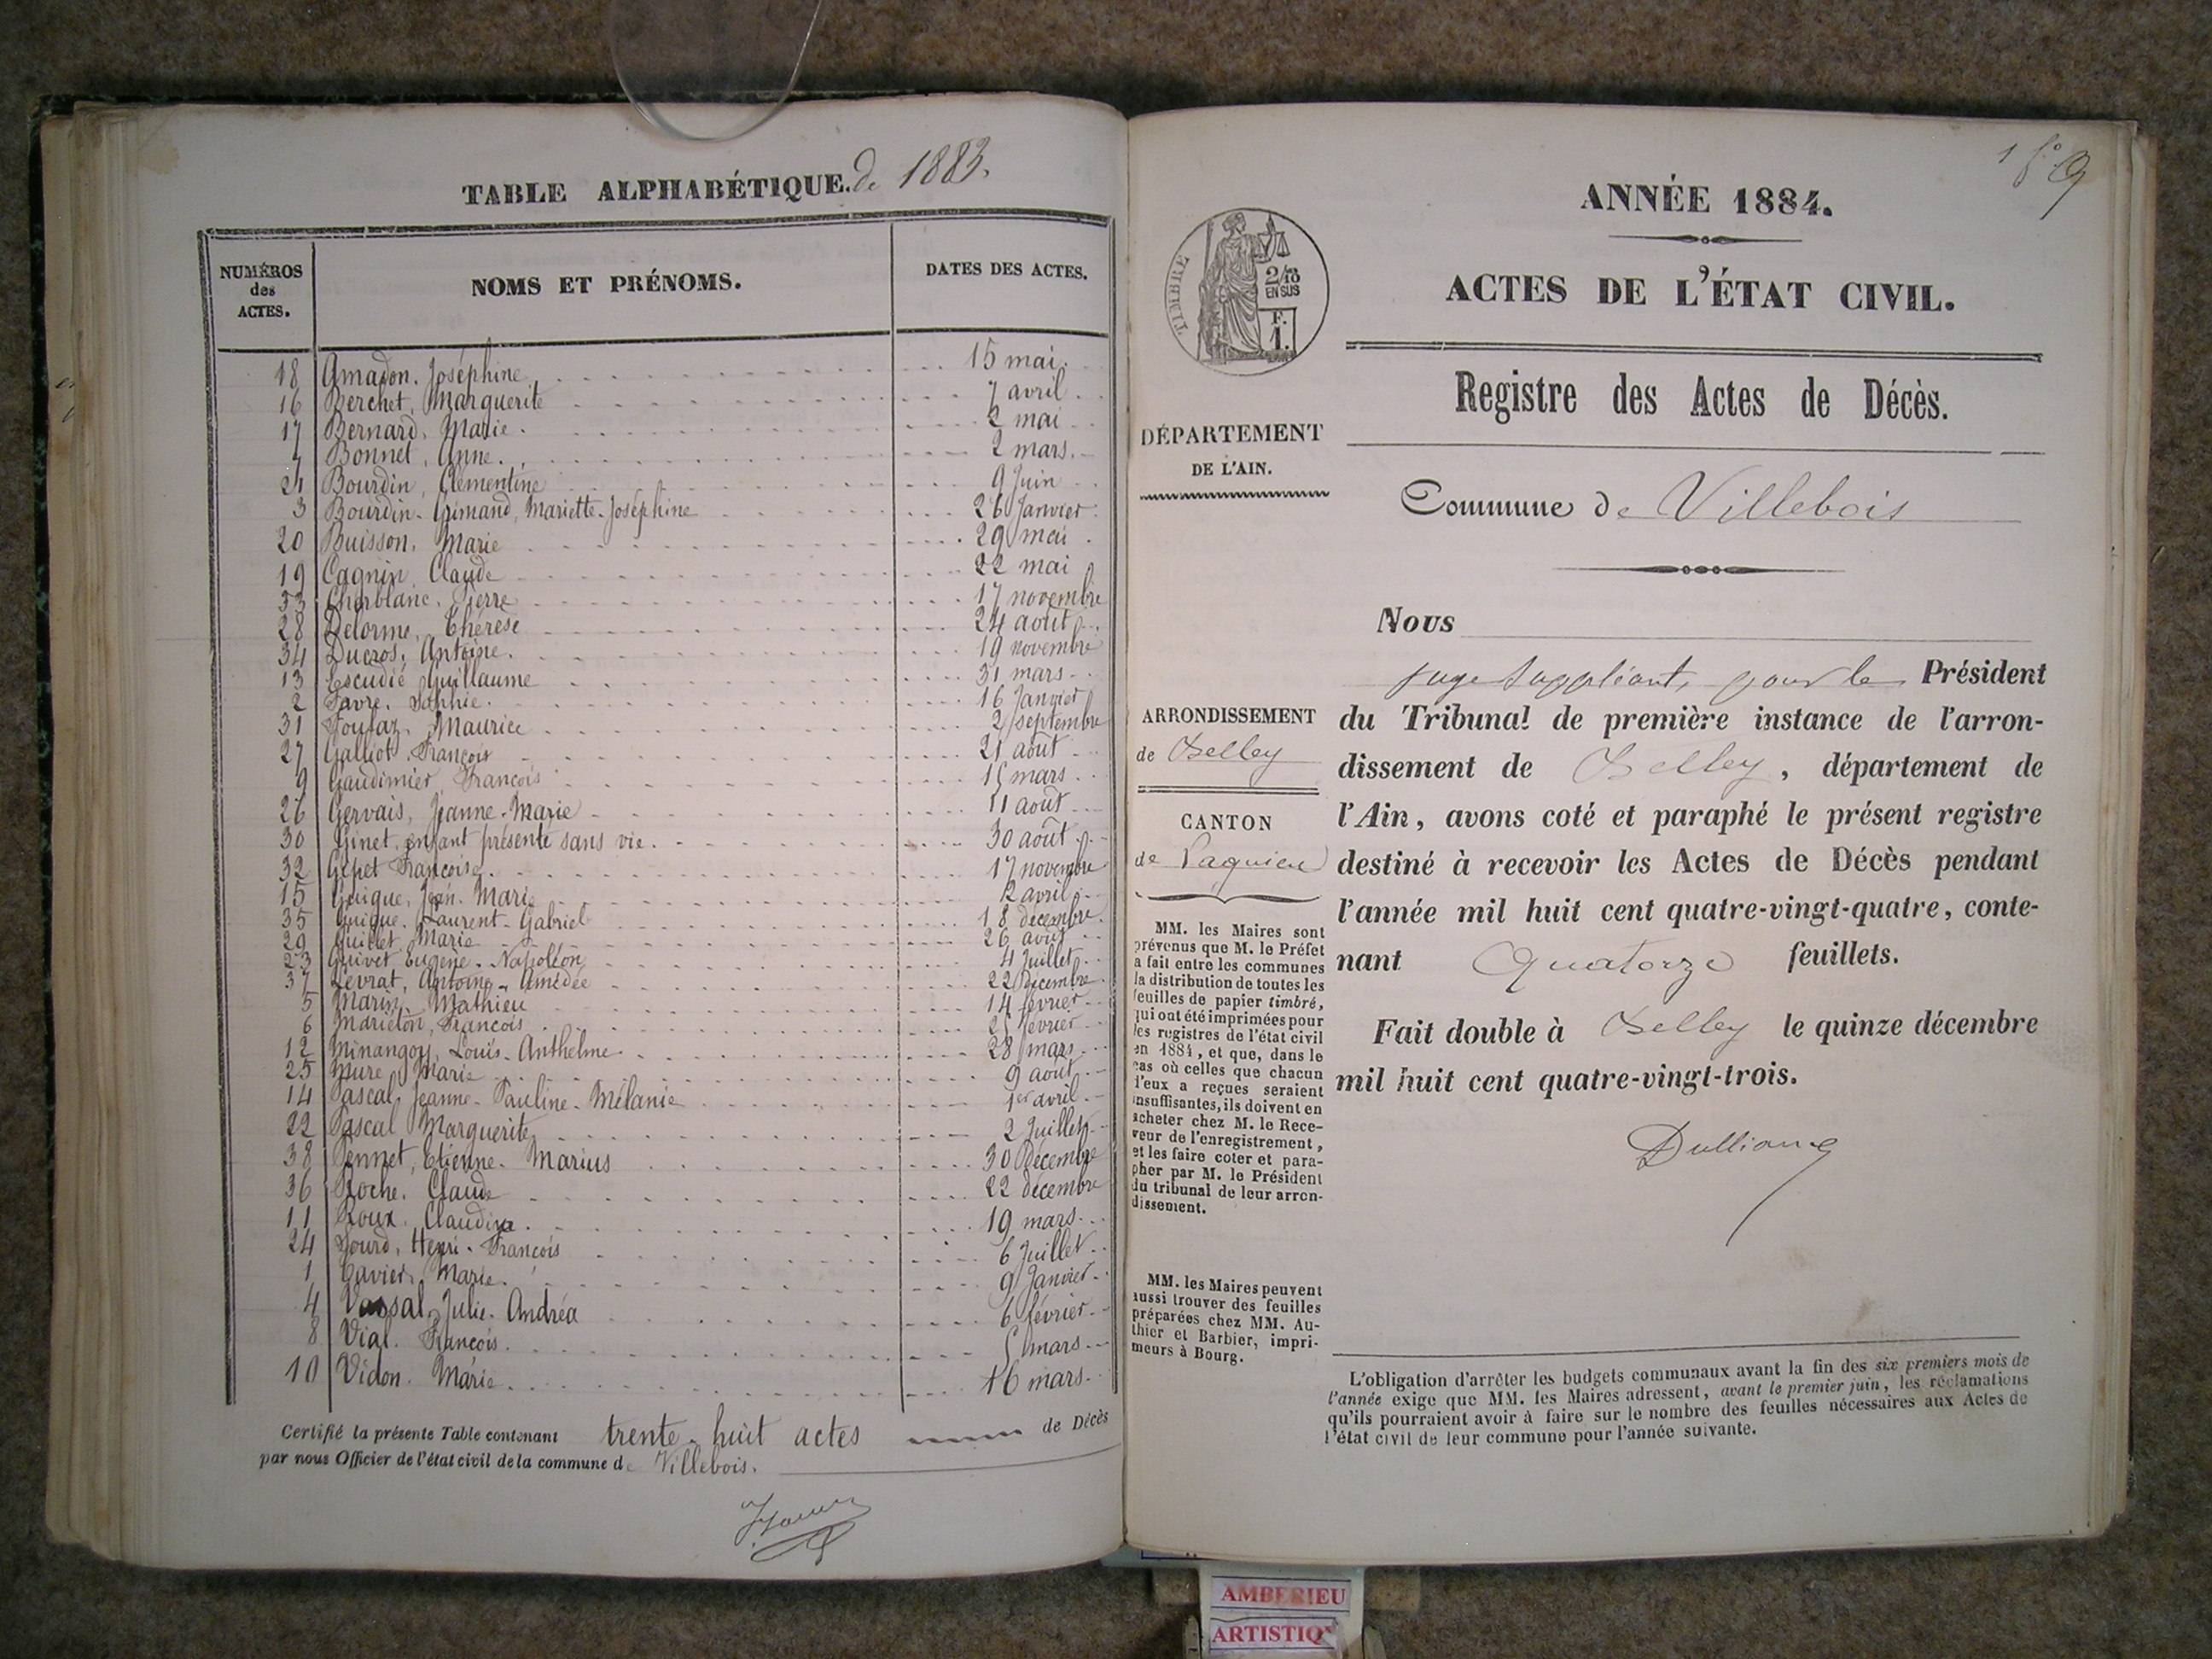 TABLE ALPHABÉTIQUE. de 1883.
NUMÉROS des ACTES. NOMS ET PRÉNOMS. DATES DES ACTES.
18 Amadon. Joséphine 15 mai.
16 Berchet, Marguerite 7 avril
17 Bernard, Marie. 2 mai
7 Bonnet, Anne. 2 mars.
21 Bourdin, Clémentine 9 Juin
3 Bourdin-Grimand, Mariette-Joséphine 26 Janvier.
20 Buisson, Marie 29 mai.
19 Cagnin, Claude 22 mai
33 Charblanc, Pierre 17 novembre
28 Delorme, Thérèse 24 août.
34 Ducros, Antoine. 19 novembre
13 Escudié Guillaume 31 mars.
2 Favre. Sophie. 16 Janvier
31 Maurice 2 septembre
27 Galliot. François 21 août
9 Gaudimier, François 15 mars
26 Gervais, Jeanne-Marie 11 août
30 Ginet, enfant présenté sans vie. 30 août
32 François 17 novembre
15 Guigue, Jean-Marie 2 avril
35 Guigue, Laurent-Gabriel 18 décembre.
29 Guillet Marie 26 août
23 Guivet Eugène-Napoléon 4 Juillet
37 Levrat, Antoine-Amédée 22 Décembre.
5 Marin, Mathieu 14 février
6 Mariéton, François 25 février
12 Minangoy, Louis-Anthelme. 28 mars
25 Mure, Marie 9 août
14 Pascal, Jeanne-Pauline-Mélanie 1er avril.
22 Pascal Marguerite 2 Juillet
38 Pennet, Etienne-Marius 30 Décembre
36 Roche. Claude 22 décembre
11 Roux. Claudine. 19 mars.
24 Sourd, Henri-François 6 Juillet.
1 Tavier, Marie. 9 Janvier.
4 Vassal, Julie-Andréa 6 février.
8 Vial. François. 5 mars
10 Vidon. Marie. 16 mars.
Certifié la présente Table contenant trente-huit actes de Décès
par nous Officier de l'état civil de la commune de Villebois.
1 fo
ANNÉE 1884.
ACTES DE L'ÉTAT CIVIL.
TIMBRE
2/10
EN SUS
F.
1.
Registre des Actes de Décès.
DÉPARTEMENT
DE L'AIN.
Commune de Villebois
Nous
juge suppléant, pour le Président
ARRONDISSEMENT
de Belley
CANTON
de Lagnieu
du Tribunal de première instance de l'arron-
dissement de Belley, département de
l'Ain, avons coté et paraphé le présent registre
destiné à recevoir les Actes de Décès pendant
l'année mil huit cent quatre-vingt-quatre, conte-
nant Quatorze feuillets.
Fait double à Belley le quinze décembre
mil huit cent quatre-vingt-trois.
MM. les Maires sont
prévenus que M. le Préfet
a fait entre les communes
la distribution de toutes les
feuilles de papier timbré,
qui ont été imprimées pour
les registres de l'état civil
en 1884, et que, dans le
cas où celles que chacun
d'eux a reçues seraient
insuffisantes, ils doivent en
acheter chez M. le Rece-
veur de l'enregistrement,
et les faire coter et para-
pher par M. le Président
du tribunal de leur arron-
dissement.
MM. les Maires peuvent
aussi trouver des feuilles
préparées chez MM. Au-
thier et Barbier, impri-
meurs à Bourg.
L'obligation d'arrêter les budgets communaux avant la fin des six premiers mois de
l'année exige que MM. les Maires adressent, avant le premier juin, les réclamations
qu'ils pourraient avoir à faire sur le nombre des feuilles nécessaires aux Actes de
l'état civil de leur commune pour l'année suivante.
AMBERIEU
ARTISTIQ